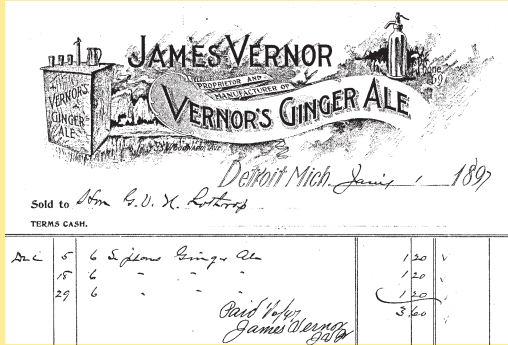 JAMES VERNOR
PROPRIETOR AND
MANUFACTURER OF
VERNOR'S GINGER ALE
VERNOR'S
GINGER
ALE
Detroit Mich. 1 1897
Sold to Hon G. V. N. Lothrop
TERMS CASH.
Dec 5 6 Siphons Ginger Ale 1 20
18 6 " " " 1 20
29 6 " " " 1 20
3 60
Paid
James Vernor